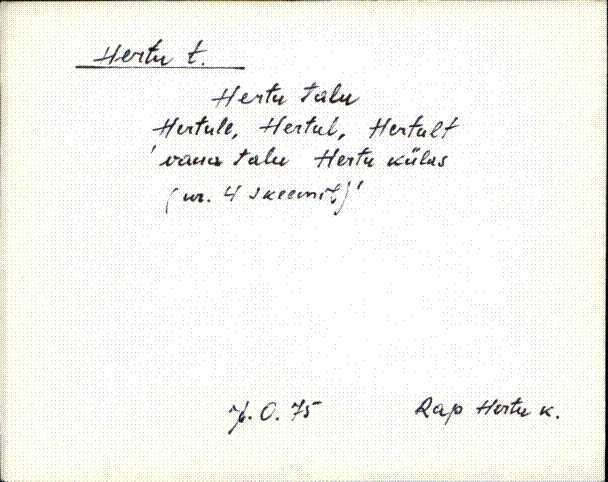 Hertu t.
Hertu talu
Hertule, Hertul, Hertult
'vana talu Hertu külas
(nr. 4 skeemil)'
O. 75 Rap Hertu k.